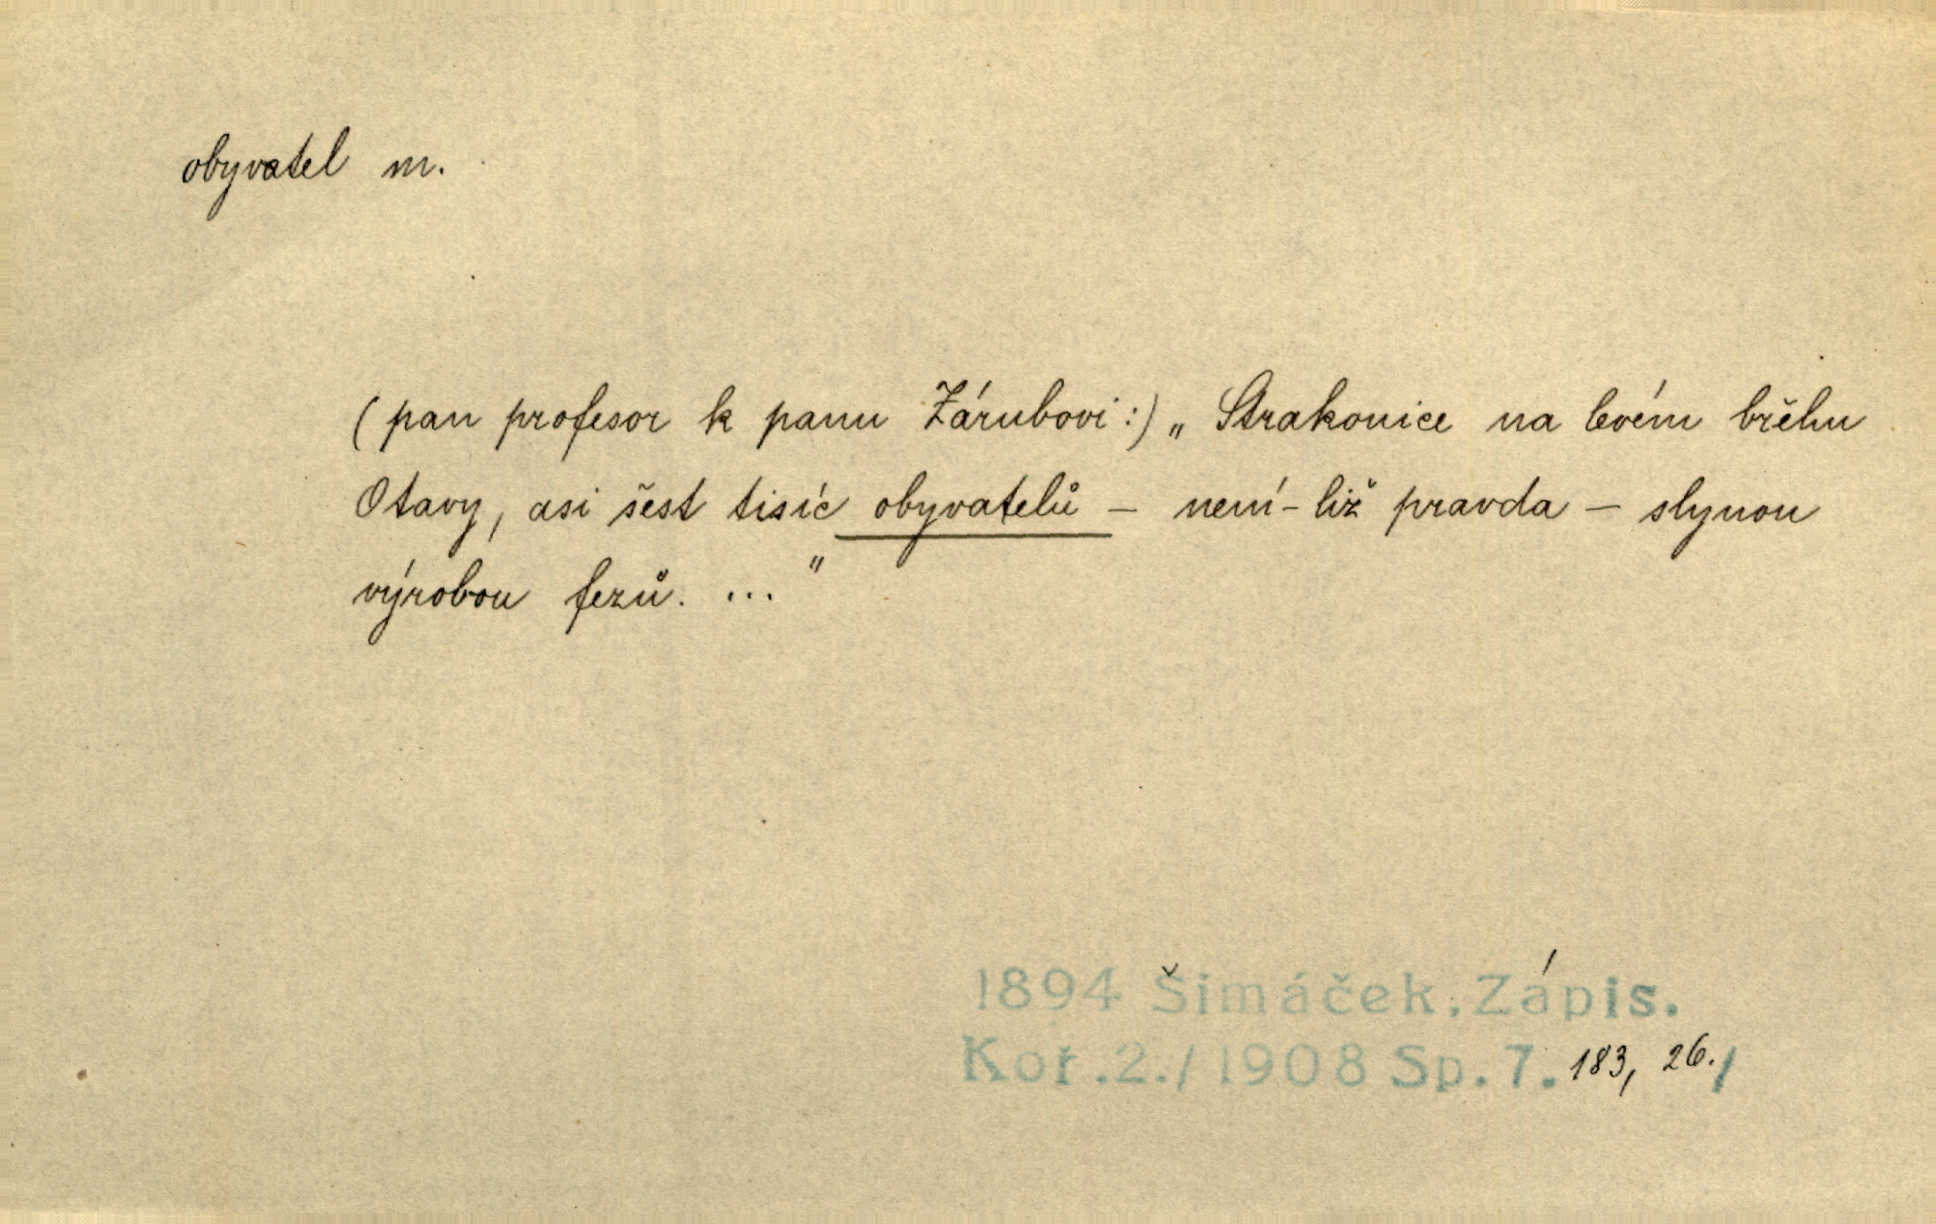 obyvatel m.
(pan profesor k panu Zárubovi:) „Strakonice na levém břěhu
Otavy, asi šest tisíc obyvatelů – není-liž pravda – slynou
výrobou fezů. ..."
1894 Šimáček, Zápis.
Koř.2./1908 Sp.7. 183, 26./